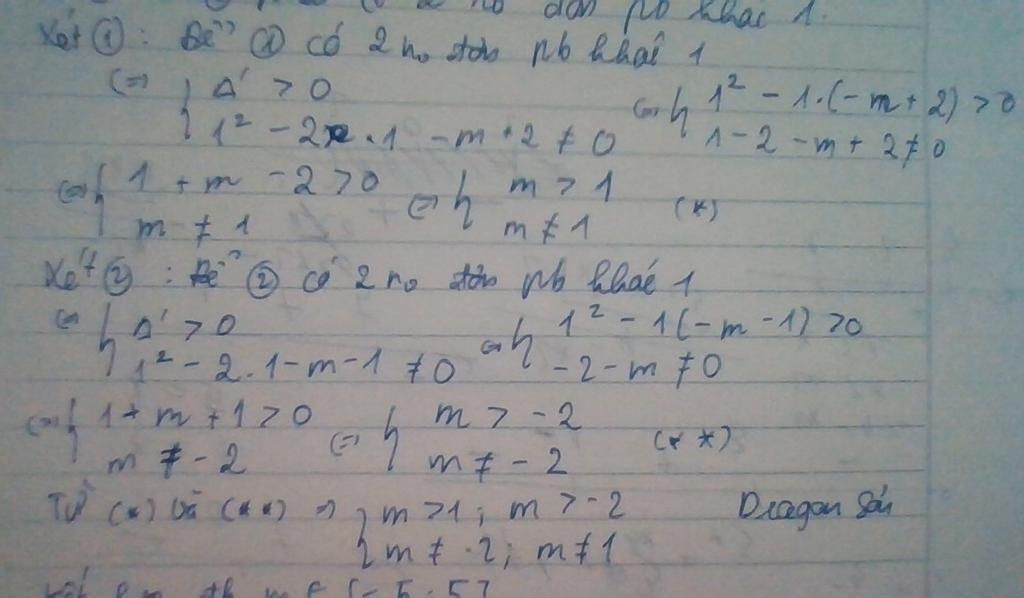 có 2 no đơn pb khác 1.
Xét ① : Để ① có 2 no đơn pb khác 1
(=) { Δ' > 0 (=) { 1² - 1.(-m + 2) > 0
1² - 2.1 - m + 2 ≠ 0 1 - 2 - m + 2 ≠ 0
(=) { 1 + m - 2 > 0 (=) { m > 1 (*)
m ≠ 1 m ≠ 1
Xét ② : Để ② có 2 no đơn pb khác 1
(=) { Δ' > 0 (=) { 1² - 1(-m - 1) > 0
1² - 2.1 - m - 1 ≠ 0 -2 - m ≠ 0
(=) { 1 + m + 1 > 0 (=) { m > -2 (**)
m ≠ -2 m ≠ -2
Từ (*) và (**) => { m > 1 ; m > -2 Dragon
m ≠ -2 ; m ≠ 1